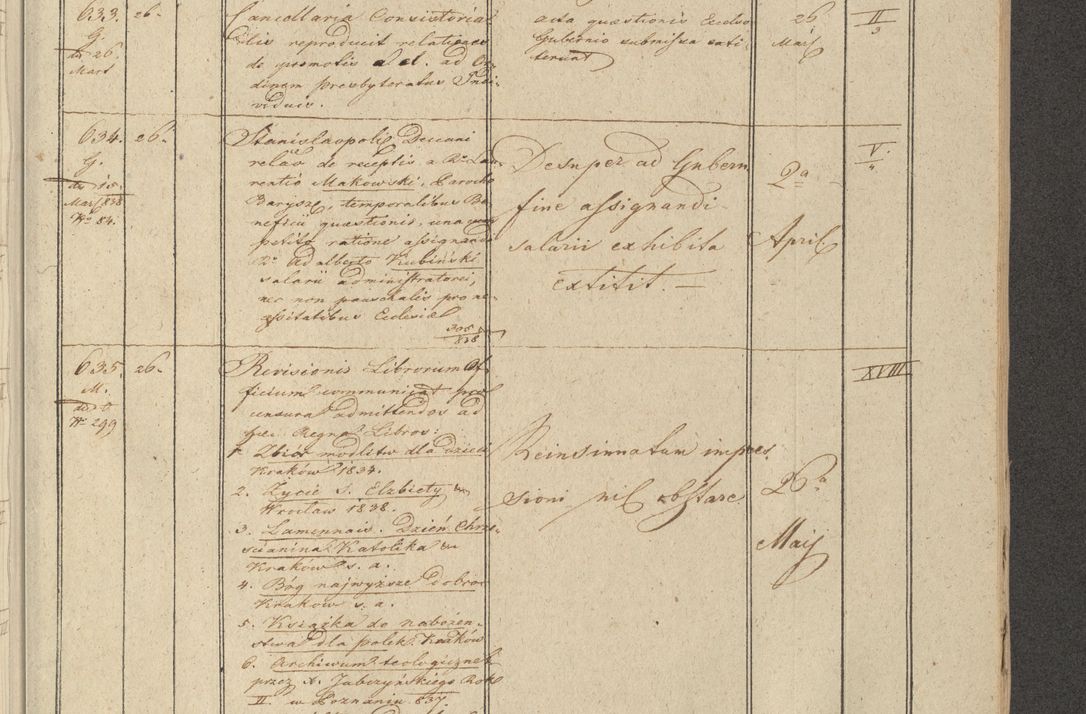 633. 26.
G.
de 26.
Mart
Cancellaria Consistoria-
lis reproducit relationes
de promotis a. d. ad Or-
dinem Presbyteratus Indi-
viduis.
acta quaestionis Excelso
Gubernio submissa exti-
terunt
26
Martj
II
3
634. 26.
G.
de 15.
Martj 838
No 84.
Stanislaopolis Decani
relao de receptis a Rdo Lau-
rentio Makowski, Parocho
Barysz, temporalibus Be-
neficii quaestionis, una cum
petito ratione assignandi
Rdo Adalberto Kubiński
salarii administratorei,
nec non pauschalis pro ne-
cessitatibus Ecclesiae
305
838
Desuper ad Gubern
fine assignandi
salarii exhibita
extitit. —
2a
April
V.
4
635. 26.
M.
No 299
Revisionis Librorum Of-
ficium communicat pro
censura admittendos ad
Regna Libros:
1. Zbiór modlitw dla dzieci
Kraków 1834.
2. Życie S. Elżbiety
Wrocław 1838.
3. Lamennais. Dzień Chrze-
ścianina Katolika
Kraków s. a.
4. Bóg najwyższe dobro
Kraków s. a.
5. Książka do nabożeń-
stwa dla polek. Kraków
6. Archiwum teologiczne
przez X. Jabczyńskiego Rok
II. w Poznaniu 837.
Reinsinuatum impres-
sioni nil obstare
26a
Maij
XVIII